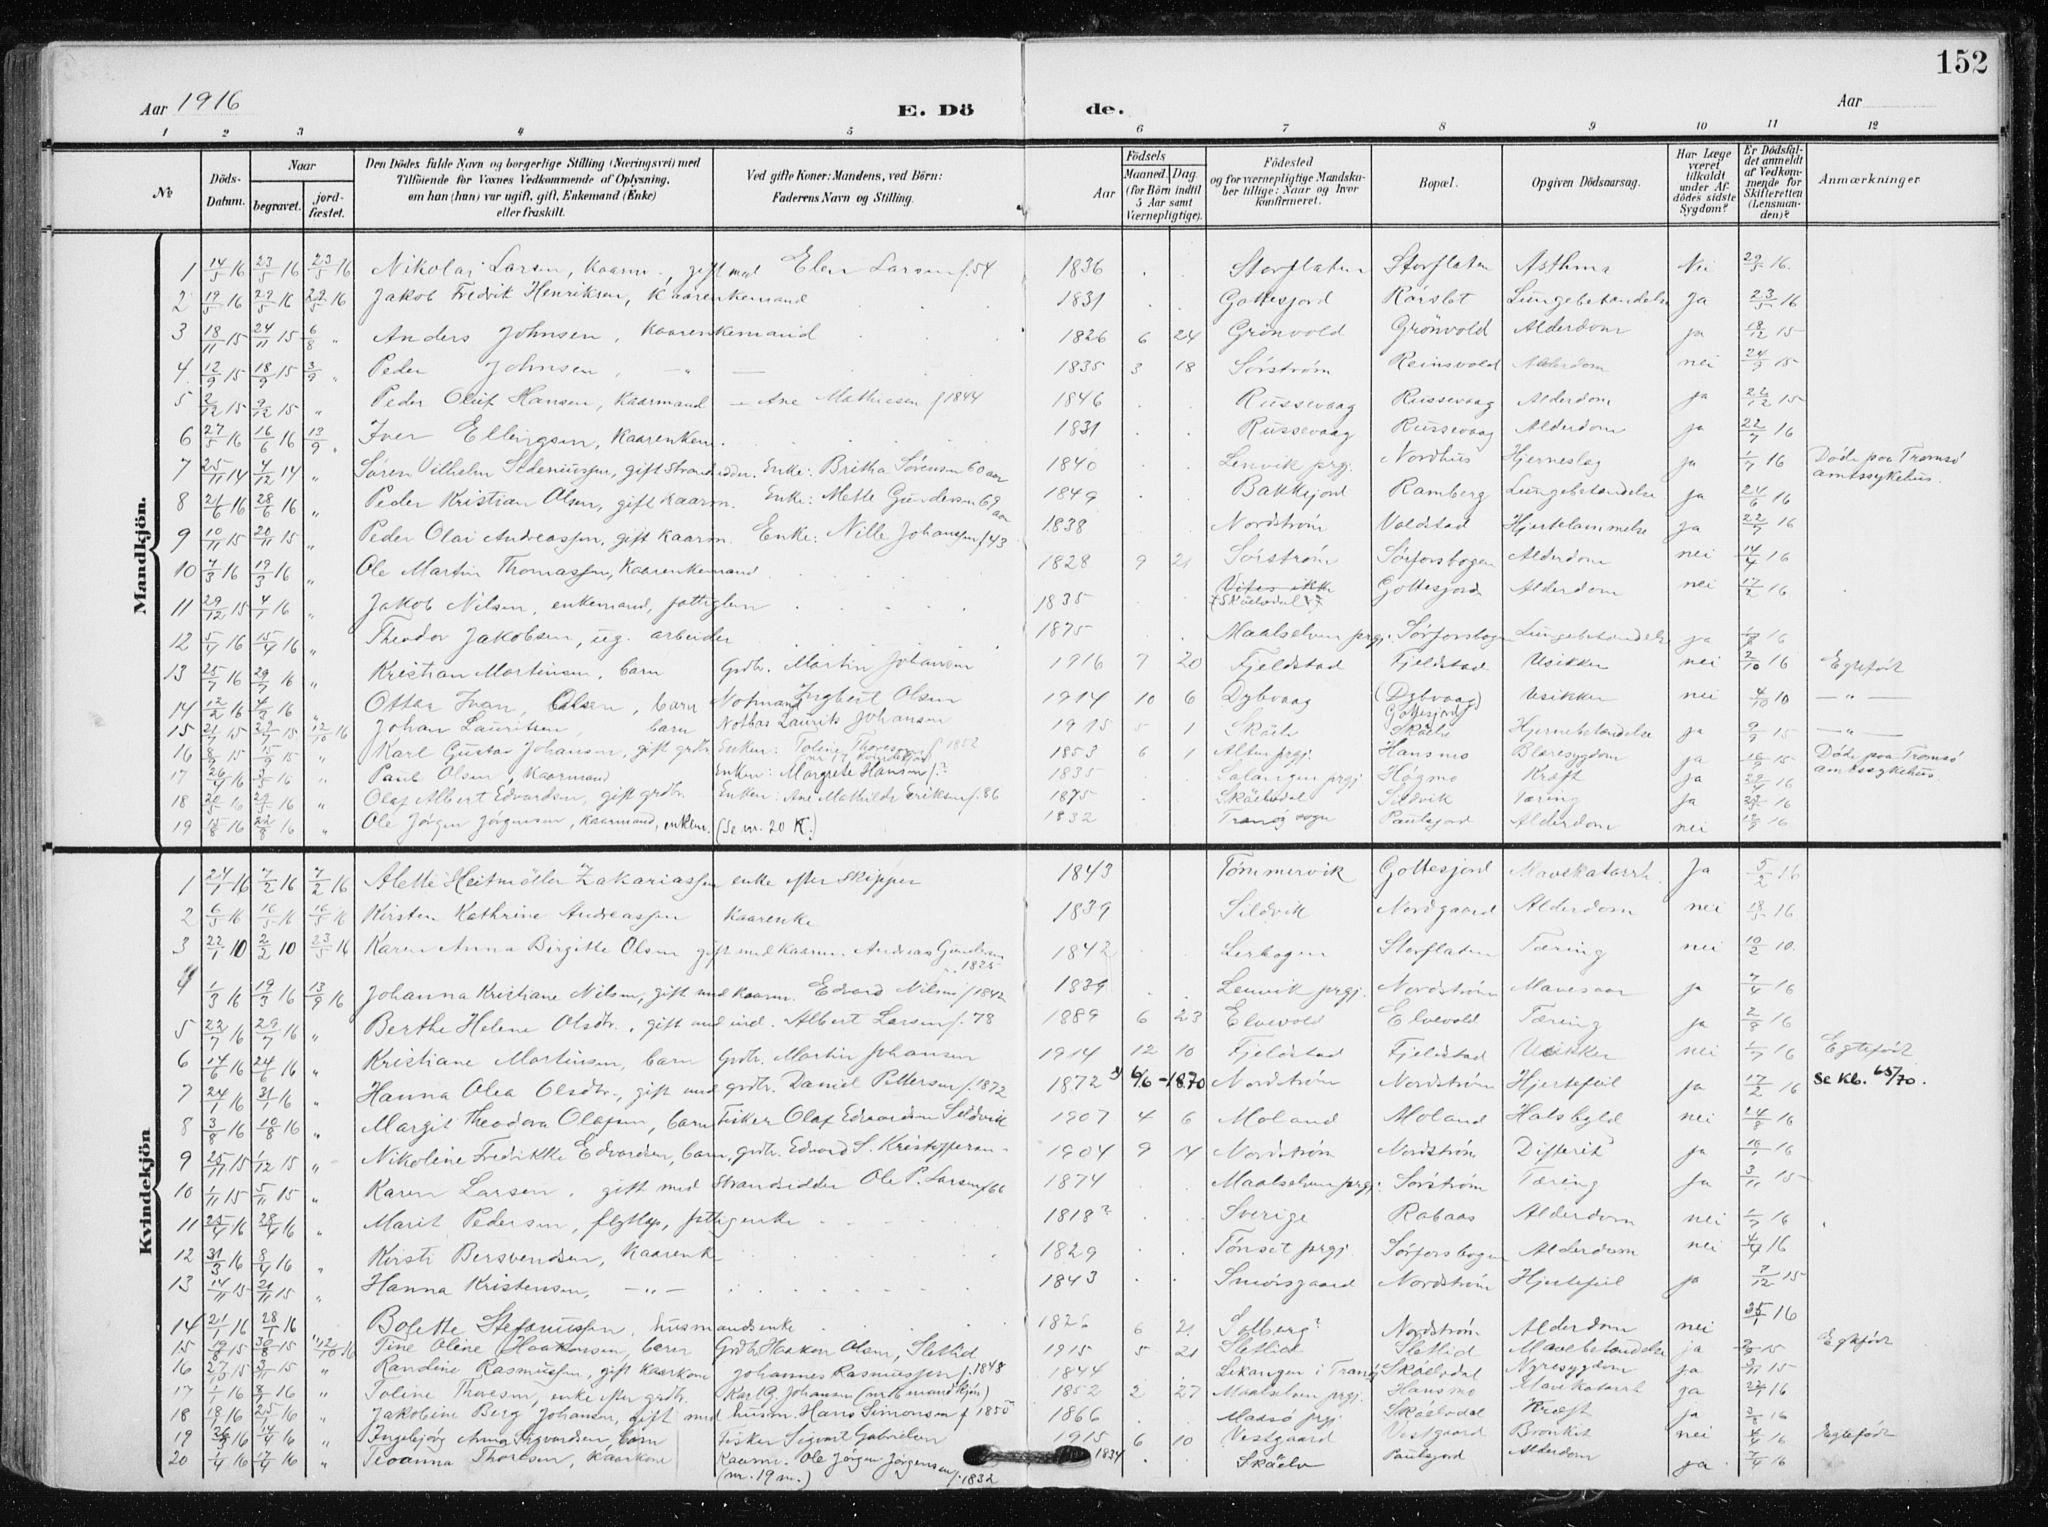 152
Aar 1916 E. Dö de. Aar
1 2 3 4 5 6 7 8 9 10 11 12
№
Döds-Datum.
Naar
begravet.
jord-fæstet.
Den Dödes fulde Navn og borgerlige Stilling (Næringsvei) med
Tilföiende for Voxnes Vedkommende af Oplysning,
om han (hun) var ugift, gift, Enkemand (Enke)
eller fraskilt.
Ved gifte Koner: Mandens, ved Börn:
Faderens Navn og Stilling.
Födsels
Aar
Maaned. Dag.
(for Börn indtil
5 Aar samt
Værnepligtige).
Födested
og for værnepligtige Mandska-
ber tillige: Naar og hvor
konfirmeret.
Bopæl.
Opgiven Dödsaarsag.
Har Læge
været
tilkaldt
under Af-
dödes sidste
Sygdom?
Er Dödsfal-
det anmeldt
af Vedkom-
mende for
Skifteretten
(Lensman-
den)?
Anmærkninger
Mandkjön.
1 14/5 16 23/5 16 23/5 16 Nikolai Larsen, Kaarm., gift med Elen Larsen f. 54 1836 Storflaten Storflaten Asthma Nei 29/5 16
2 19/5 16 29/5 16 29/5 16 Jakob Fredrik Henriksen, Kaarenkemand 1831 Gottesjord Rørslet Lungebetændelse Ja 23/5 16
3 18/11 15 24/11 15 6/8 " Anders Johnsen, Kaarenkemand 1826 6 24 Grönvold Grönvold Alderdom ja 18/12 15
4 12/9 15 18/9 15 3/9 " Peder Johnsen, 1835 3 18 Sørstrøm Reinsvold Alderdom nei 24/9 15
5 2/12 15 9/12 15 " Peder Oluf Hansen, Kaarmand Ane Mathiesen f 1844 1846 Russevaag Russevaag Alderdom ja 12 15
6 27/5 16 16/6 16 13/9 " Iver Ellingsen, Kaarenkem. 1831 Russevaag Russevaag Alderdom ja 22/7 16
7 25/11 14 4/12 14 " Søren Vilhelm Steniussen, gift Strandsidder. Enke: Britha Sørensen 60 aar 1840 Lenvik prgj. Nordhus Hjerneslag ja 1/7 16 Døde paa Tromsö amtssykehus.
8 21/6 16 28/6 16 " Peder Kristian Olsen, gift kaarm. Enke: Mette Gundersen 69 aar 1849 Bakkejord Ramberg Lungebetændelse ja 24/6 16
9 10/11 15 20/11 15 " Peder Olai Andreassen, gift kaarm. Enke: Nille Johansen f 43 1838 Nordstrøm Voldstad Hjertelammelse ja 22/7 16
10 7/3 16 19/3 16 " Ole Martin Thomassen, Kaarenkemand 1828 9 21 Sørstrøm Sørforsbogen Alderdom nei 14/4 16
11 29/12 15 4/1 16 " Jakob Nilsen, enkemand, fattiglem 1835 Vites ikke (Skøelvdal?) Gottesjord Alderdom nei 17/2 16
12 5/4 16 15/4 16 " Theodor Jakobsen, ug. arbeider 1875 Maalselven prgj. Sørforsbogen Lungebetændelse ja 16
13 25/7 16 29/7 16 " Kristian Martinsen, barn Grdbr. Martin Johansen 1916 7 20 Fjeldstad Fjeldstad Usikker nei 2/10 16 Egtefødt
14 12/2 16 4/3 16 " Ottar Ivan, Olsen, barn Notmand Ingbert Olsen 1914 10 6 Dybvaag (Dybvaag) Gottesjord Usikker nei 4/10 10 — " —
15 21/7 15 15 12/10 16 Johan Lauritsen, barn Notbas Laurits Johansen 1915 5 1 Skøelv Skøelv Hjernebetændelse ja 9/9 15 — " —
16 8/9 15 15/9 15 " Karl Gustav Johansen, gift grdbr. Enken: Toline Thoresen f 1852 (nr. 17 kvindekjøn) 1853 6 1 Alten prgj. Hansmo Blæresygdom ja 16/9 15 Døde paa Tromsö amtssykehus.
17 26/4 16 3/5 16 " Paul Olsen, Kaarmand Enken: Margrete Hansen f. ? 1835 Salangen prgj. Høgmo Kræft ja 16
18 16 29/5 16 " Olaf Albert Edvardsen, gift grdbr. Enken: Ane Mathilde Eriksen f. 86 1875 Skøelvdal Sildvik Tæring ja 16
19 15/8 16 22/8 16 " Ole Jørgen Jørgensen, Kaarmand, enkem. (Se nr. 20 K.) 1832 Tranøj sogn Paulsjord Alderdom nei 16
Kvindekjön
1 24/1 16 7/2 16 7/2 16 Alette Heitmöller Zakariassen enke efter Skipper 1843 Tømmervik Gottesjord Mavekatarrh. Ja 5/2 16
2 6/5 16 16/5 16 16/5 16 Kirsten Kathrine Andreassen Kaarenke 1839 Sildvik Nordgaard Alderdom nei 18/5 16
3 22/1 10 2/2 10 23/5 16 Karen Anna Birgitte Olsen gift med Kaarm. Andreas Gundersen f. 1825 1842 Leirbogen Storflaten Tæring nei 10/2 10.
4 1/3 16 19/3 16 13/9 16 Johanna Kristiane Nilsen, gift med kaarm. Edvard Nilsen f 1842 1839 Lenvik prgj. Nordstrøm Mavesaar ja 7/4 16
5 22/7 16 29/7 16 " Berthe Helene Olsdtr., gift med ind. Albert Larsen f. 78 1889 6 23 Elvevold Elvevold Tæring ja 2/8 16
6 14/6 16 24/6 16 " Kristiane Martinsen, barn Grdbr. Martin Johansen 1914 12 10 Fjeldstad Fjeldstad Usikker nei 1/7 16 Egtefødt
7 24/1 16 31/1 16 " Hanna Olea Olsdtr., gift med grdbr. Daniel Pettersen f. 1872 1872 6/6 -1870 Nordstrøm Nordstrøm Hjertefeil ja 17/2 16 Se Kb. 65/70.
8 3/8 16 10/8 16 " Margit Theodora Olafsen, barn Fisker Olaf Edvardsen Sildvik 1907 4 6 Moland Moland Halsbyld nei 14/8 16
9 25/11 15 1/12 15 " Nikoline Fredrikke Edvardsen, barn, grdbr. Edvard S. Kristoffersen 1904 9 14 Nordstrøm Nordstrøm Difterit ja 16
10 1/11 15 5/11 15 " Karen Larsen, gift med Strandsidder Ole P. Larsen f 66 1874 Maalselven prgj. Sørstrøm Tæring Ja 3/11 15
11 25/4 16 28/4 16 " Marit Pedersen, flytlap, fattigenke 1818? Sverige Rabaas Alderdom nei 1/7 16
12 31/3 16 8/4 16 " Kirsti Bersvendsen, Kaarenke 1829 Tönset prgj. Sørforsbogen Alderdom nei 16
13 14/11 15 21/11 15 " Hanna Kristensen, — " — 1843 Smørsgaard Nordstrøm Hjertefeil ja 7/12 15
14 21/1 16 28/1 16 Bolette Stefanussen, husmandsenke 1826 6 21 Solberg? Nordstrøm Alderdom nei 16
15 19/8 15 15 " 12/10 16 Tine Oline Haakonsen, barn Grdbr. Haakon Olsen, Sletlid 1915 5 21 Sletlid Sletlid Mavebetændelse ja 15 Egtefødt
16 27/10 15 3/11 15 " Randine Rasmussen, gift kaarkone Johannes Rasmussen f. 1848 1844 Lekangen i Tranøj Skøelvdal Nyresygdom ja 15
17 1/1 16 8/1 16 " Toline Thoresen, enke efter grdbr. Karl G. Johansen (nr 16 mandkjøn) 1852 2 27 Maalselven prgj. Hansmo Mavekatarrh ja 16
18 18/1 16 25/1 16 " Jakobine Berg Johansen, gift med husm. Hans Simonsen f 1850 1866 Maasø prgj. Skøelvdal Kræft ja 3/8 16
19 26/3 16 14/4 16 " Ingebjørg Anna Sigvardsen barn Fisker Sigvart Gabrielsen 1915 6 10 Vestgaard Vestgaard Bronkit nei 4/4 16 Egtefødt
20 1/4 16 17/4 16 " Joanna Thoresen, Kaarkone Kaarm. Ole Jørgen Jørgensen f. 1832 (nr. 19 m.) 1834 Skøelv Paulsjord Alderdom ja 7/4 16